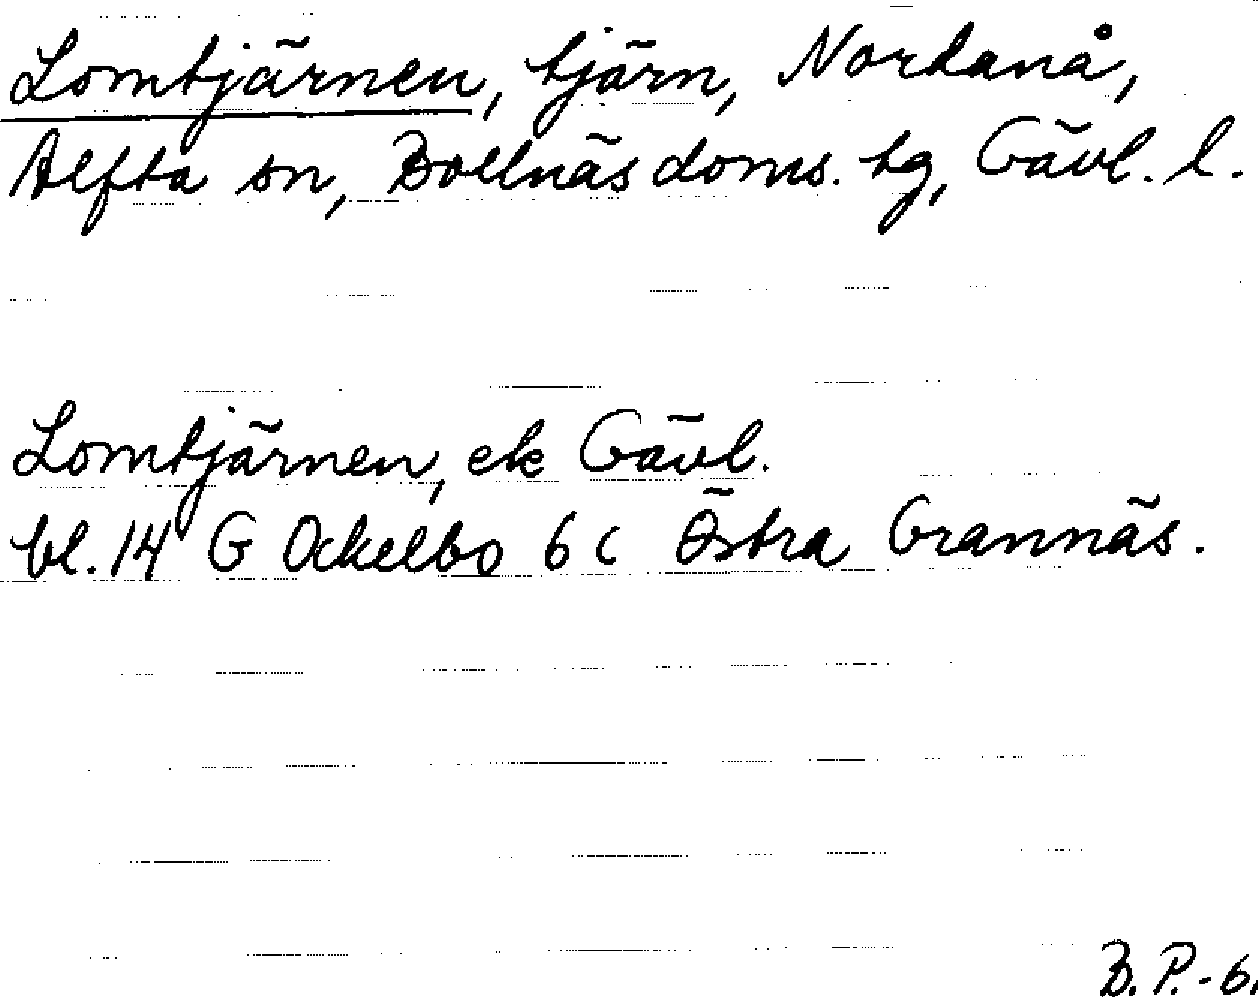 Lomtjärnen, tjärn, Nordanå,
Alfta sn, Bollnäs doms. tg, Gävl. l.
Lomtjärnen, ek Gävl.
bl. 14 G Ockelbo 6 c Östra Grannäs.
B. P. - 6